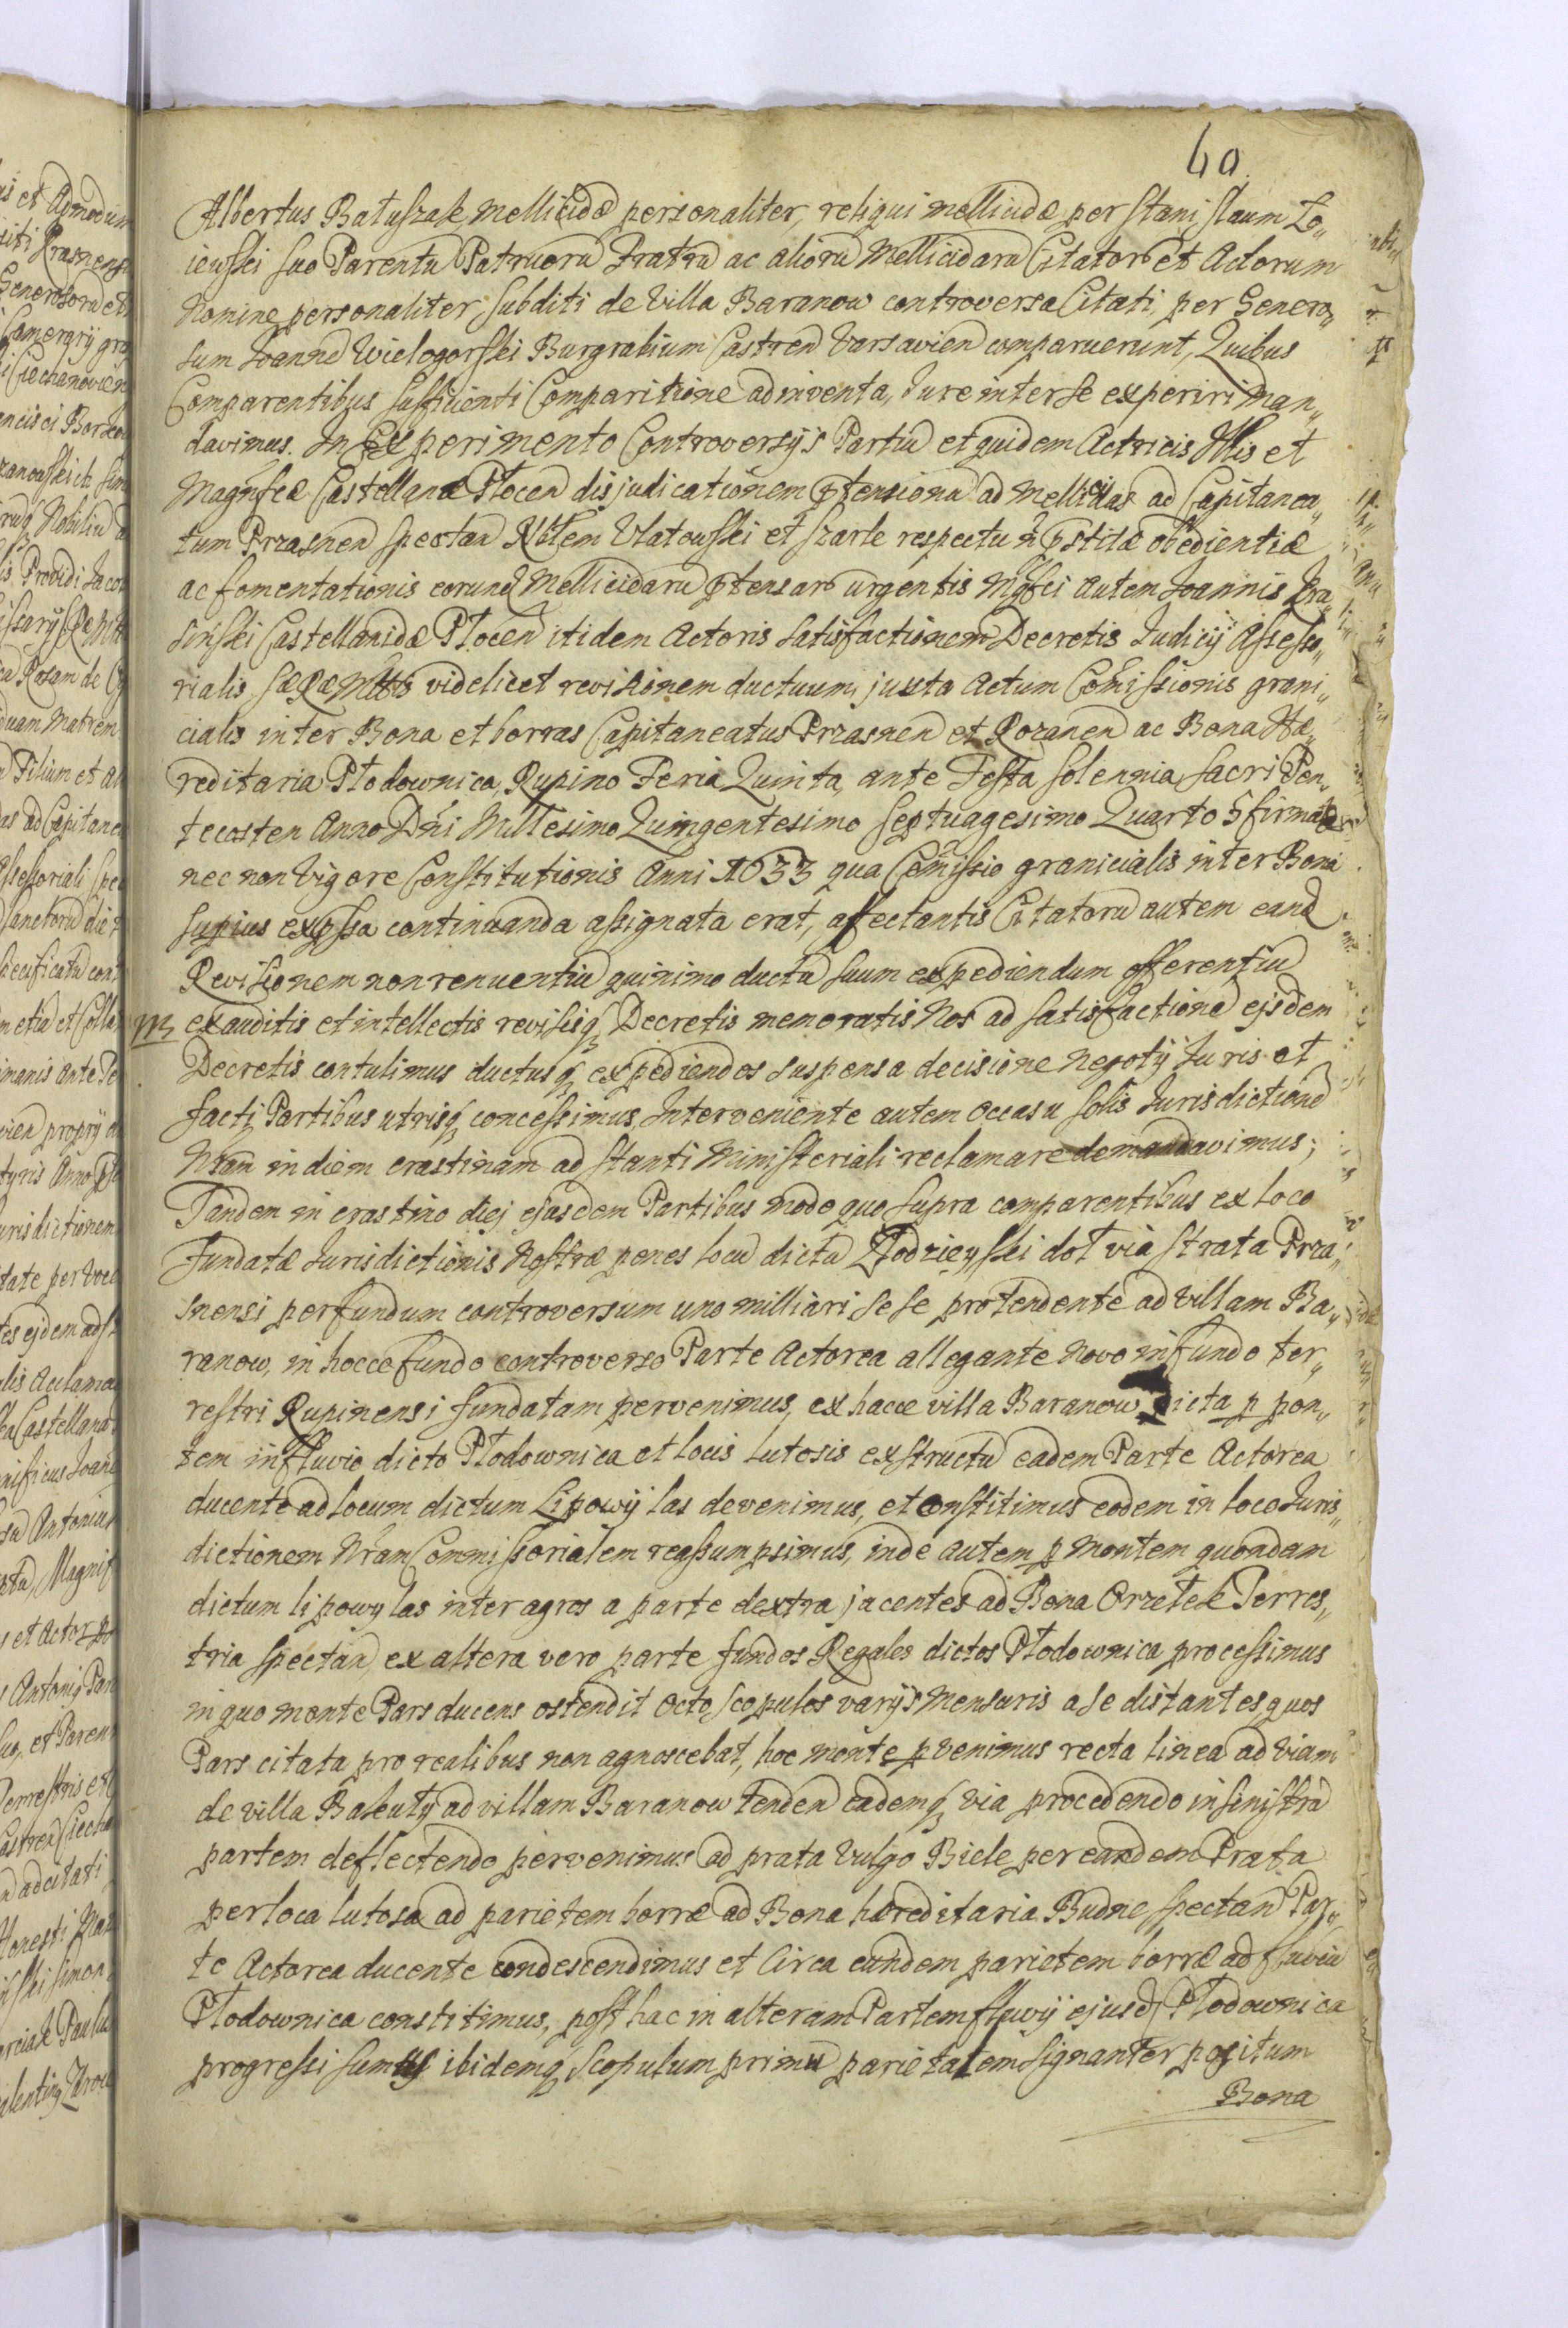 40
Albertus Batuszak Mellicidæ personaliter, reliqui mellicidæ per Stanislaum Zo„
iewski suo Parentũ Patruorũ Fratrũ ac aliorũ Mellicidarũ Citator et Actorum
Nomine personaliter, Subditi de Villa Baranow controversa Citati, per Genero„
sum Joannẽ Wielogorski Burgrabium Castren Varsavien comparuerunt, Quibus
Comparentibus sufficienti Comparitione adinventa, Jure inter se experiri man„
davimus. In Experimento Controversijs Partiũ et quidem Actricis Illis et
Magnfcæ Castellanæ Płocen disjudicationem ptensionũ ad Mellicidas ad Capitanea„
tum Przasnen spectan Nblem Ulatowski et Szarle respectu ñ pstitæ obedientiæ
ac fomentationis eorund Mellicidarũ ptensar urgentis Mgfci autem Joannis Kra„
sinski Castellanidæ Płocen itidem Actoris satisfactionem Decretis Judicij Assesso„
rialis videlicet revisionem ductuum juxta Actum Comissionis grani„
cialis inter Bona et borras Capitaneatus Przasnen et Rozanen ac Bona Hæ„
reditaria Płodownica, Rupino Feria Quinta, ante Festa solennia sacri Pen„
tecosten Anno Dñi Millesimo Quingentesimo Septuagesimo Quarto
nec non Vigore Constitutionis Anni 1633 qua Comissio granicialis inter Bona
supius expssa continuanda assignata erat, affectantis Citatorũ autem eand
Revisionem non renuentiũ quinimo ductũ suum expediendum offerentiũ
exauditis et intellectis revisisq Decretis memoratis Nos ad satisfactionẽ ejsdem
Decretis contulimus ductusq expediendos suspensa decisione negotij Juris et
facti Partibus utrisq concessimus, Interveniente autem Occasu Solis Jurisdictionẽ
Nram in diem crastinam adstanti Ministeriali reclamare demandavimus;
Tandem in crastino diej ejusdem Partibus modo quo supra comparentibus ex loco
fundatæ Jurisdictionis Nostræ penes locũ dictũ doł via strata Prza„
snensi per fundum controversum uno milliari sese protendente ad villam Ba„
ranow, in hocce fundo controverso Parte Actorea allegante novo in fundo ter„
restri Rupinensi fundatam pervenimus, ex hacce villa Baranow dicta p pon„
tem in fluvio dicto Płodownica et locis lutosis exstructũ eadem Parte Actorea
ducente ad locum dictum Lipowy las devenimus, et constitimus eodem in loco Juris„
dictionem Nram Commissorialem reassumpsimus, inde autem p montem quondam
dictum lipowy las inter agros a parte dextra jacentes ad Bona Orzełek Terres„
tria spectan, ex altera vero parte fundos Regales dictos Płodownica processimus
in quo monte Pars ducens ostendit octo scopulos varijs mensuris a se distantes, quos
Pars citata pro realibus non agnoscebat, hoc monte pvenimus recta linea ad viam
de villa Bakuły ad villam Baranow tenden eademq via procedendo in sinistrã
partem deflectendo pervenimus ad prata Vulgo Biele per eandem Prata
per loca lutosa ad parietem borræ ad Bona hæreditaria Budne spectan Par„
te Actorea ducente condescendimus et Circa eundem parietem borræ ad fluviũ
Płodownica constitimus, post hac in alteram Partem fluvij ejusd Płodownica
progressi sumus ibidemq scopulum primũ parietalem signanter positum
Bona